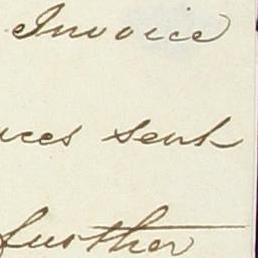 Invoice
ces sent
further